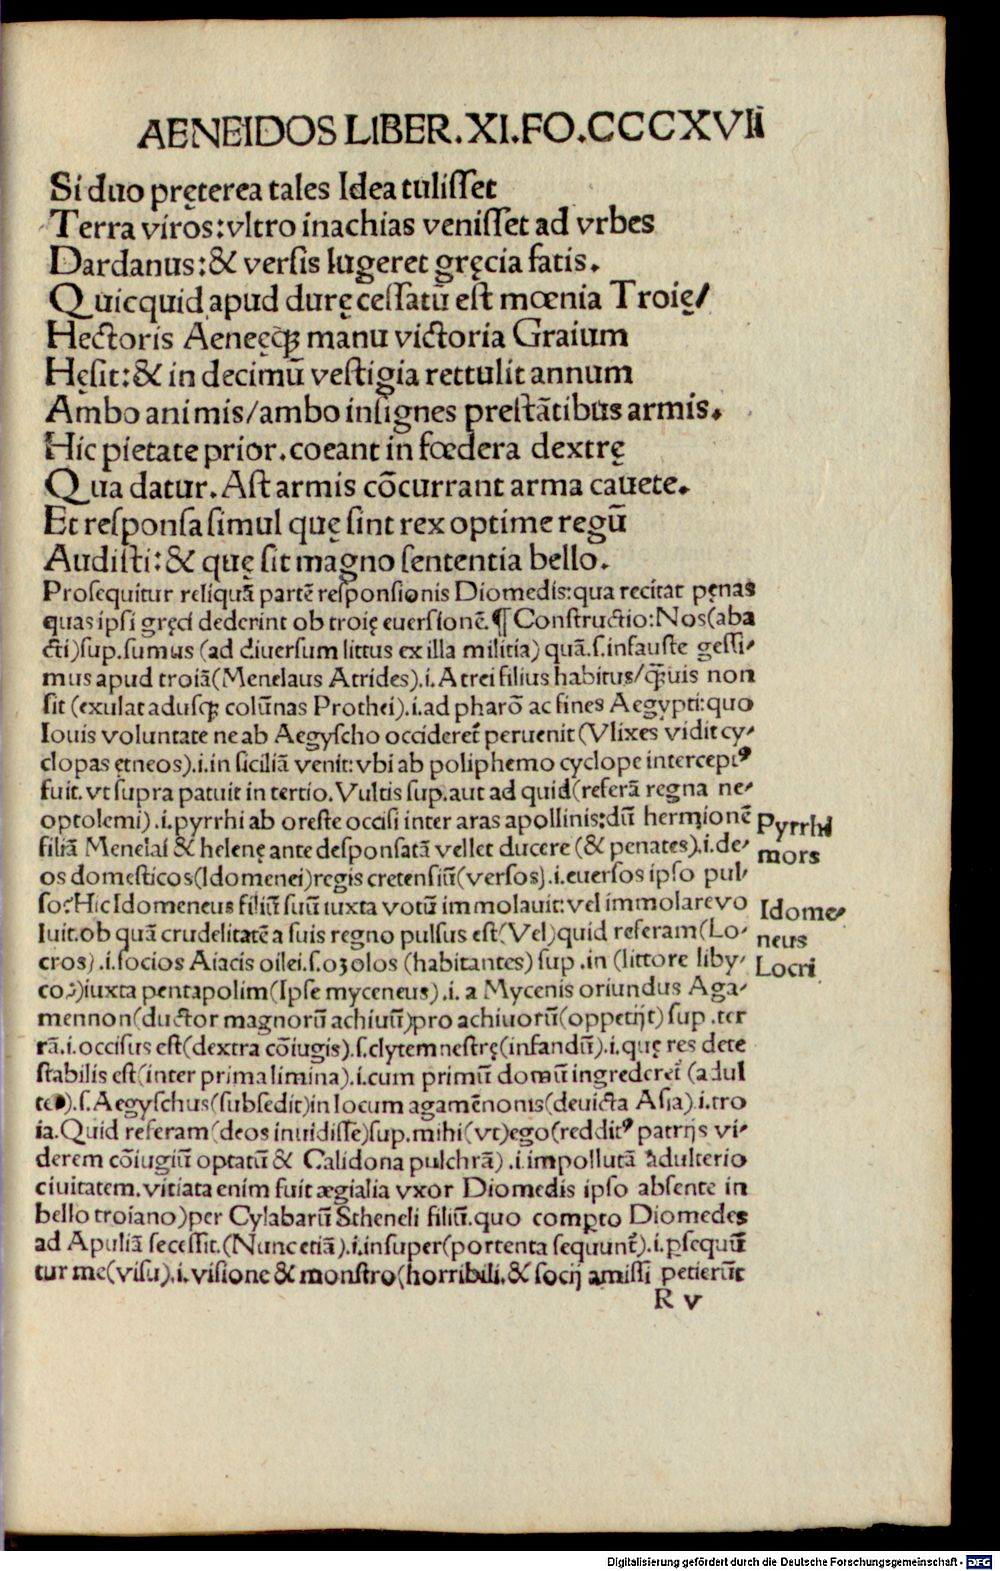 AENEIDOS LIBER.XI.FO.CCCXVII
Si duo pręterea tales Idea tulisset
Terra viros:vltro inachias venisset ad vrbes
Dardanus:& versis lugeret gręcia fatis.
Quicquid apud durę cessatū est mœnia Troię/
Hectoris Aeneęqꝫ manu victoria Graium
Hęsit:& in decimū vestigia rettulit annum
Ambo animis/ambo insignes prestātibus armis.
Hic pietate prior.coeant in fœdera dextrę
Qua datur.Ast armis cōcurrant arma cauete.
Et responsa simul quę sint rex optime regū
Audisti:& quę sit magno sententia bello.
Prosequitur reliquā partē responsionis Diomedis:qua recitat pęnas
quas ipsi gręci dederint ob troię euersionē.¶ Constructio:Nos(aba
cti)sup.sumus (ad diuersum littus ex illa militia) quā.s.infauste gessi/
mus apud troiā(Menelaus Atrides).i.Atrei filius habitus/qꝫuis non
sit (exulat adusqꝫ colūnas Prothei).i.ad pharō ac fines Aegypti:quo
Iouis voluntate ne ab Aegyscho occideret᷑ peruenit(Vlixes vidit cy/
clopas ętneos).i.in siciliā venit:vbi ab poliphemo cyclope intercept⁹
fuit.vt supra patuit in tertio.Vultis sup.aut ad quid(referā regna ne/
optolemi).i.pyrrhi ab oreste occisi inter aras apollinis:dū hermionē
filiā Menelai & helenę ante desponsatā vellet ducere (& penates).i.de/
os domesticos(Idomenei)regis cretensiū(versos).i.euersos ipso pul/
so?Hic Idomeneus filiū suū iuxta votū immolauit:vel immolare vo
luit.ob quā crudelitatē a suis regno pulsus est(Vel)quid referam(Lo/
cros).i.socios Aiacis oilei.s.oꝫolos (habitantes) sup.in (littore liby/
co?)iuxta pentapolim(Ipse myceneus).i. a Mycenis oriundus Aga/
mennon(ductor magnorū achiuū)pro achiuorū(oppetijt) sup.ter
rā.i.occisus est(dextra cōiugis).s.clytemnestrę(infandū).i.quę res dete
stabilis est(inter prima limina).i.cum primū domū ingrederet᷑ (adul
ter).s.Aegyschus(subsedit)in locum agamēnonis(deuicta Asia).i.tro
ia.Quid referam(deos inuidisse)sup.mihi(vt)ego(reddit⁹ patrijs vi/
derem cōiugiū optatū & Calidona pulchrā).i.impollutā adulterio
ciuitatem.vitiata enim fuit ægialia vxor Diomedis ipso absente in
bello troiano)per Cylabarū Stheneli filiū.quo comꝑto Diomedes
ad Apuliā secessit.(Nunc etiā).i.insuper(portenta sequunt᷑).i.ꝑsequū
tur me(visu).i.visione & monstro(horribili.& socij amissi petierūt
R v
Pyrrhi
mors
Idome/
neus
Locri
Digitalisierung gefördert durch die Deutsche Forschungsgemeinschaft - DFG